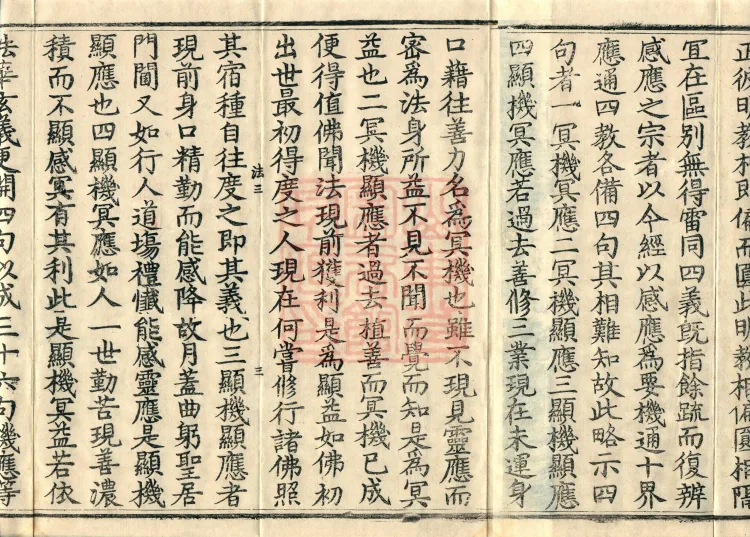 宜在區別無得雷同四義既指餘疏而復辨
感應之宗者以今經以感應為要機通十界
應通四教各備四句其相難知故此略示四
句者一冥機冥應二冥機顯應三顯機顯應
四顯機冥應若過去善修三業現在未運身
口藉往善力名為冥機也雖不現見靈應而
密為法身所益不見不聞而覺而知是為冥
益也二冥機顯應者過去植善而冥機已成
便得值佛聞法現前獲利是為顯益如佛初
出世最初得度之人現在何嘗修行諸佛照
法三 三
其宿種自往度之即其義也三顯機顯應者
現前身口精勤而能感降故月蓋曲躬聖居
門閫又如行人道場禮懺能感靈應是顯機
顯應也四顯機冥應如人一世勤苦現善濃
積而不顯感冥有其利此是顯機冥益若依
法華玄義更開四句以成三十六句機應等